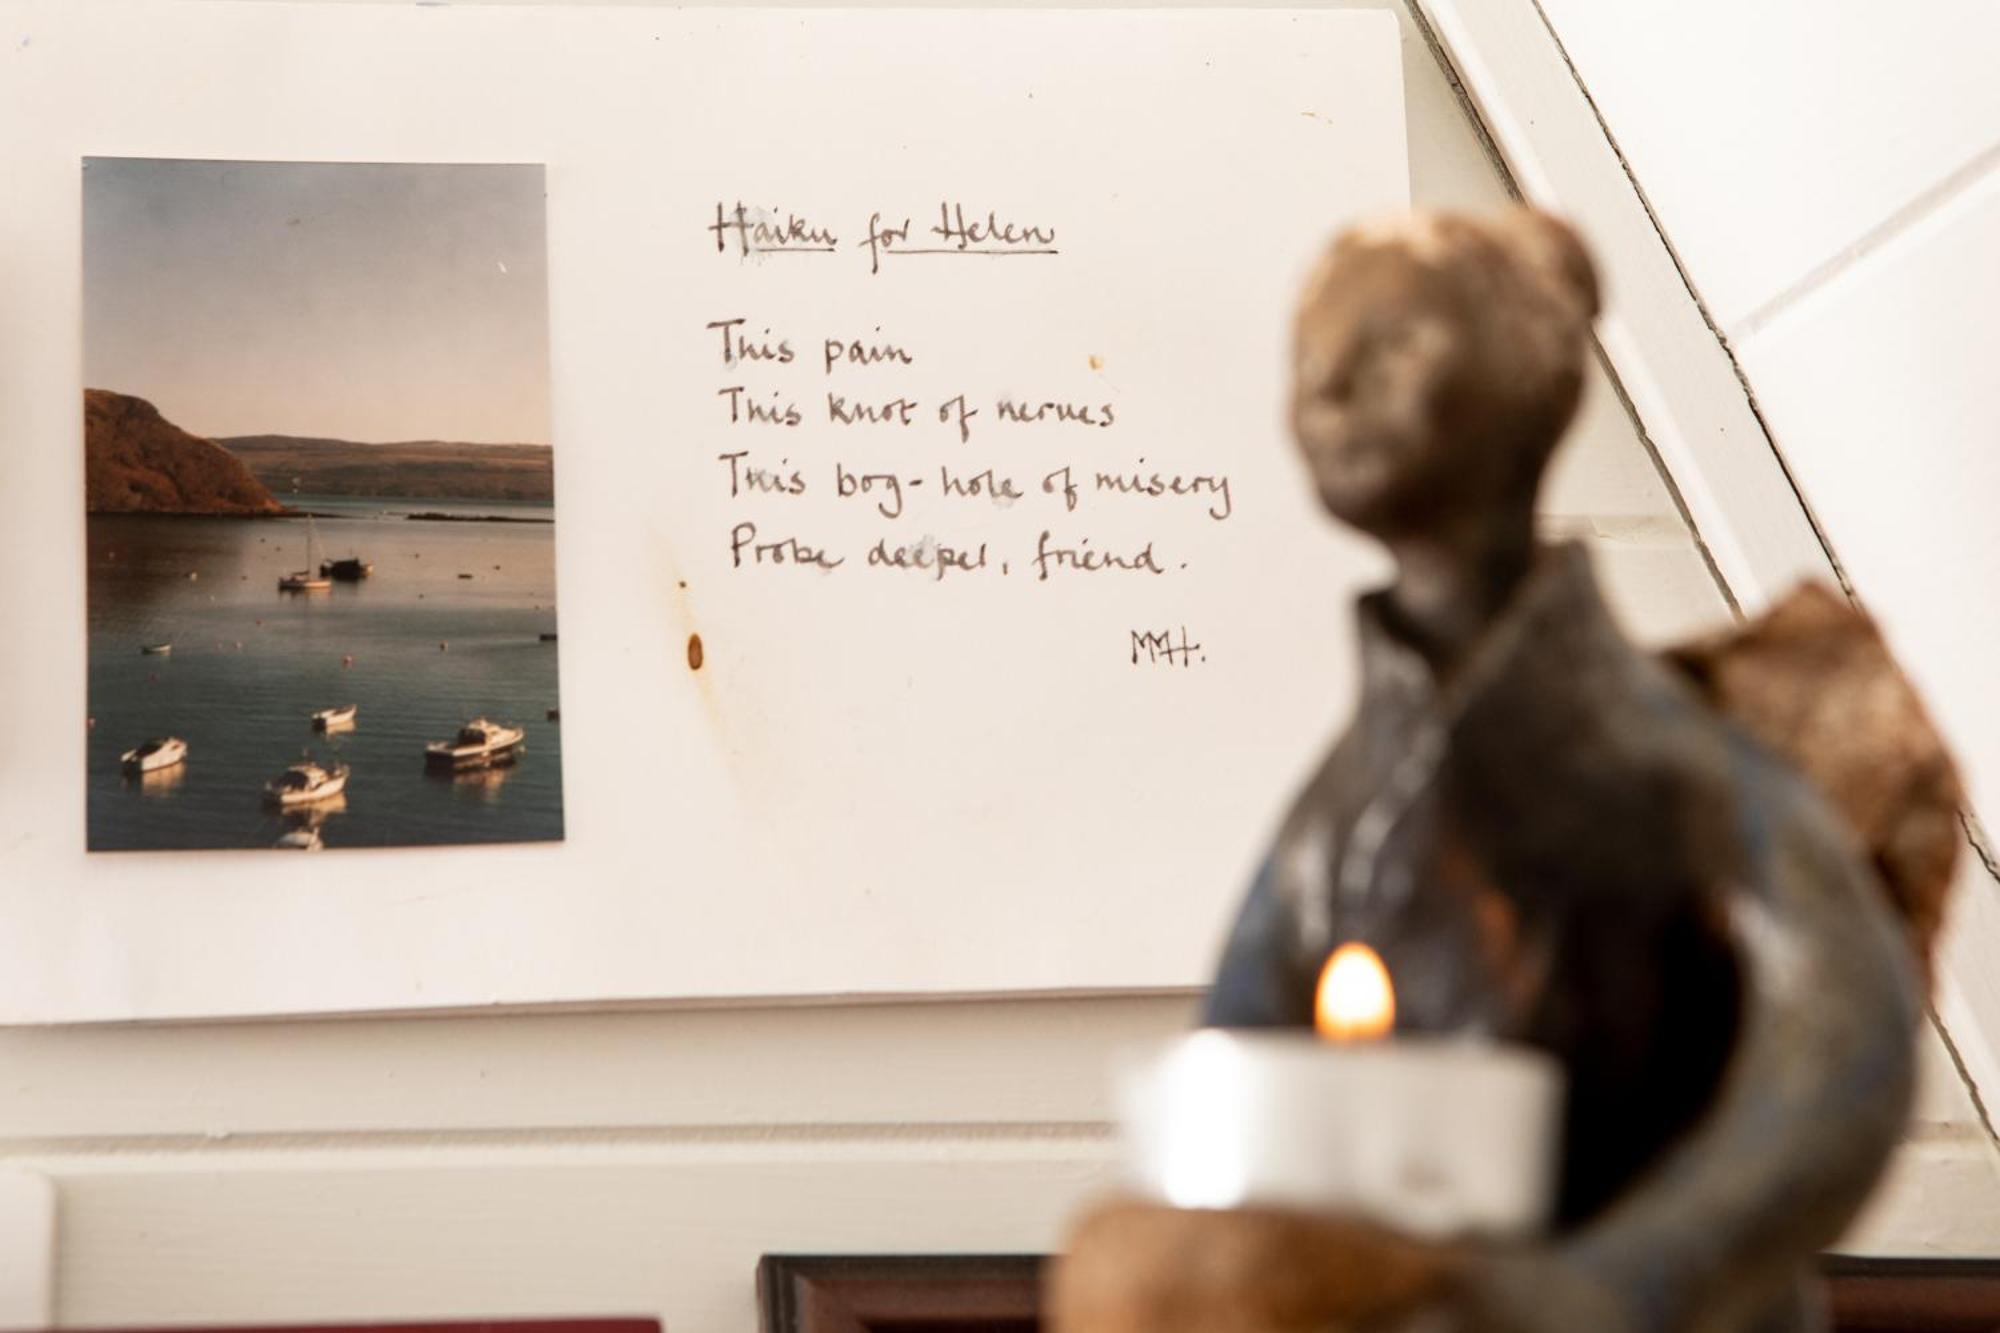 Haiku for Helen
This pain
This knot of nerves
This bog-hole of misery
Probe deeper, friend.
MMH.